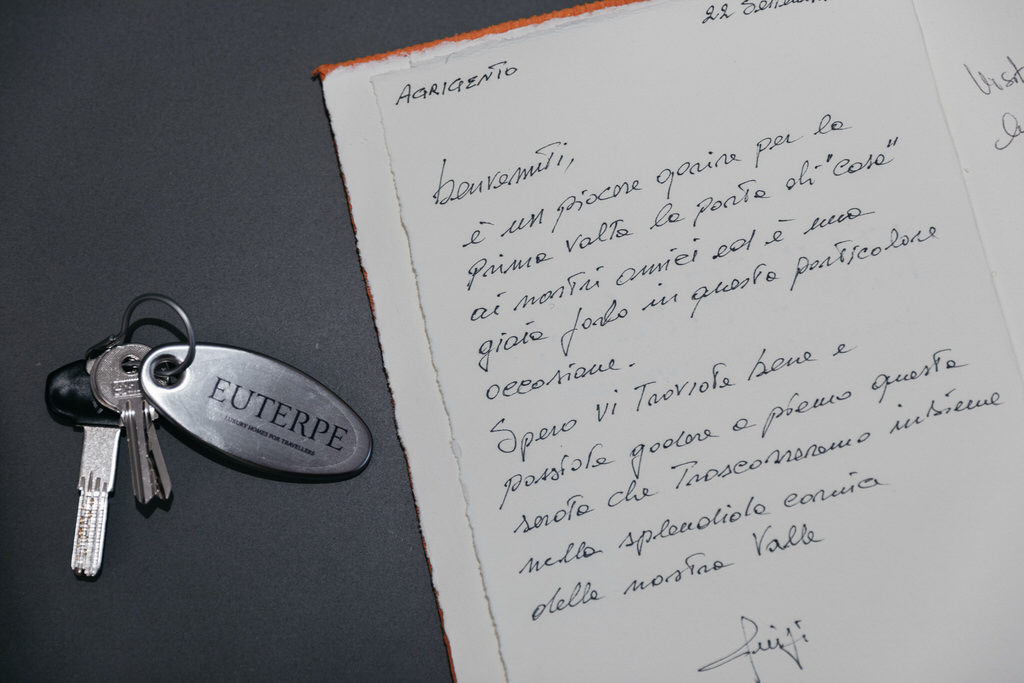 22
AGRIGENTO
benvenuti,
è un piacere aprire per la
prima volta la porta di "casa"
ai nostri amici ed è una
gioia farlo in questa particolare
occasione.
Spero vi troviate bene e
possiate godere a pieno questa
serata che trascorreremo insieme
nella splendida cornice
della nostra Valle
Luigi
EUTERPE
LUXURY HOMES FOR TRAVELLERS